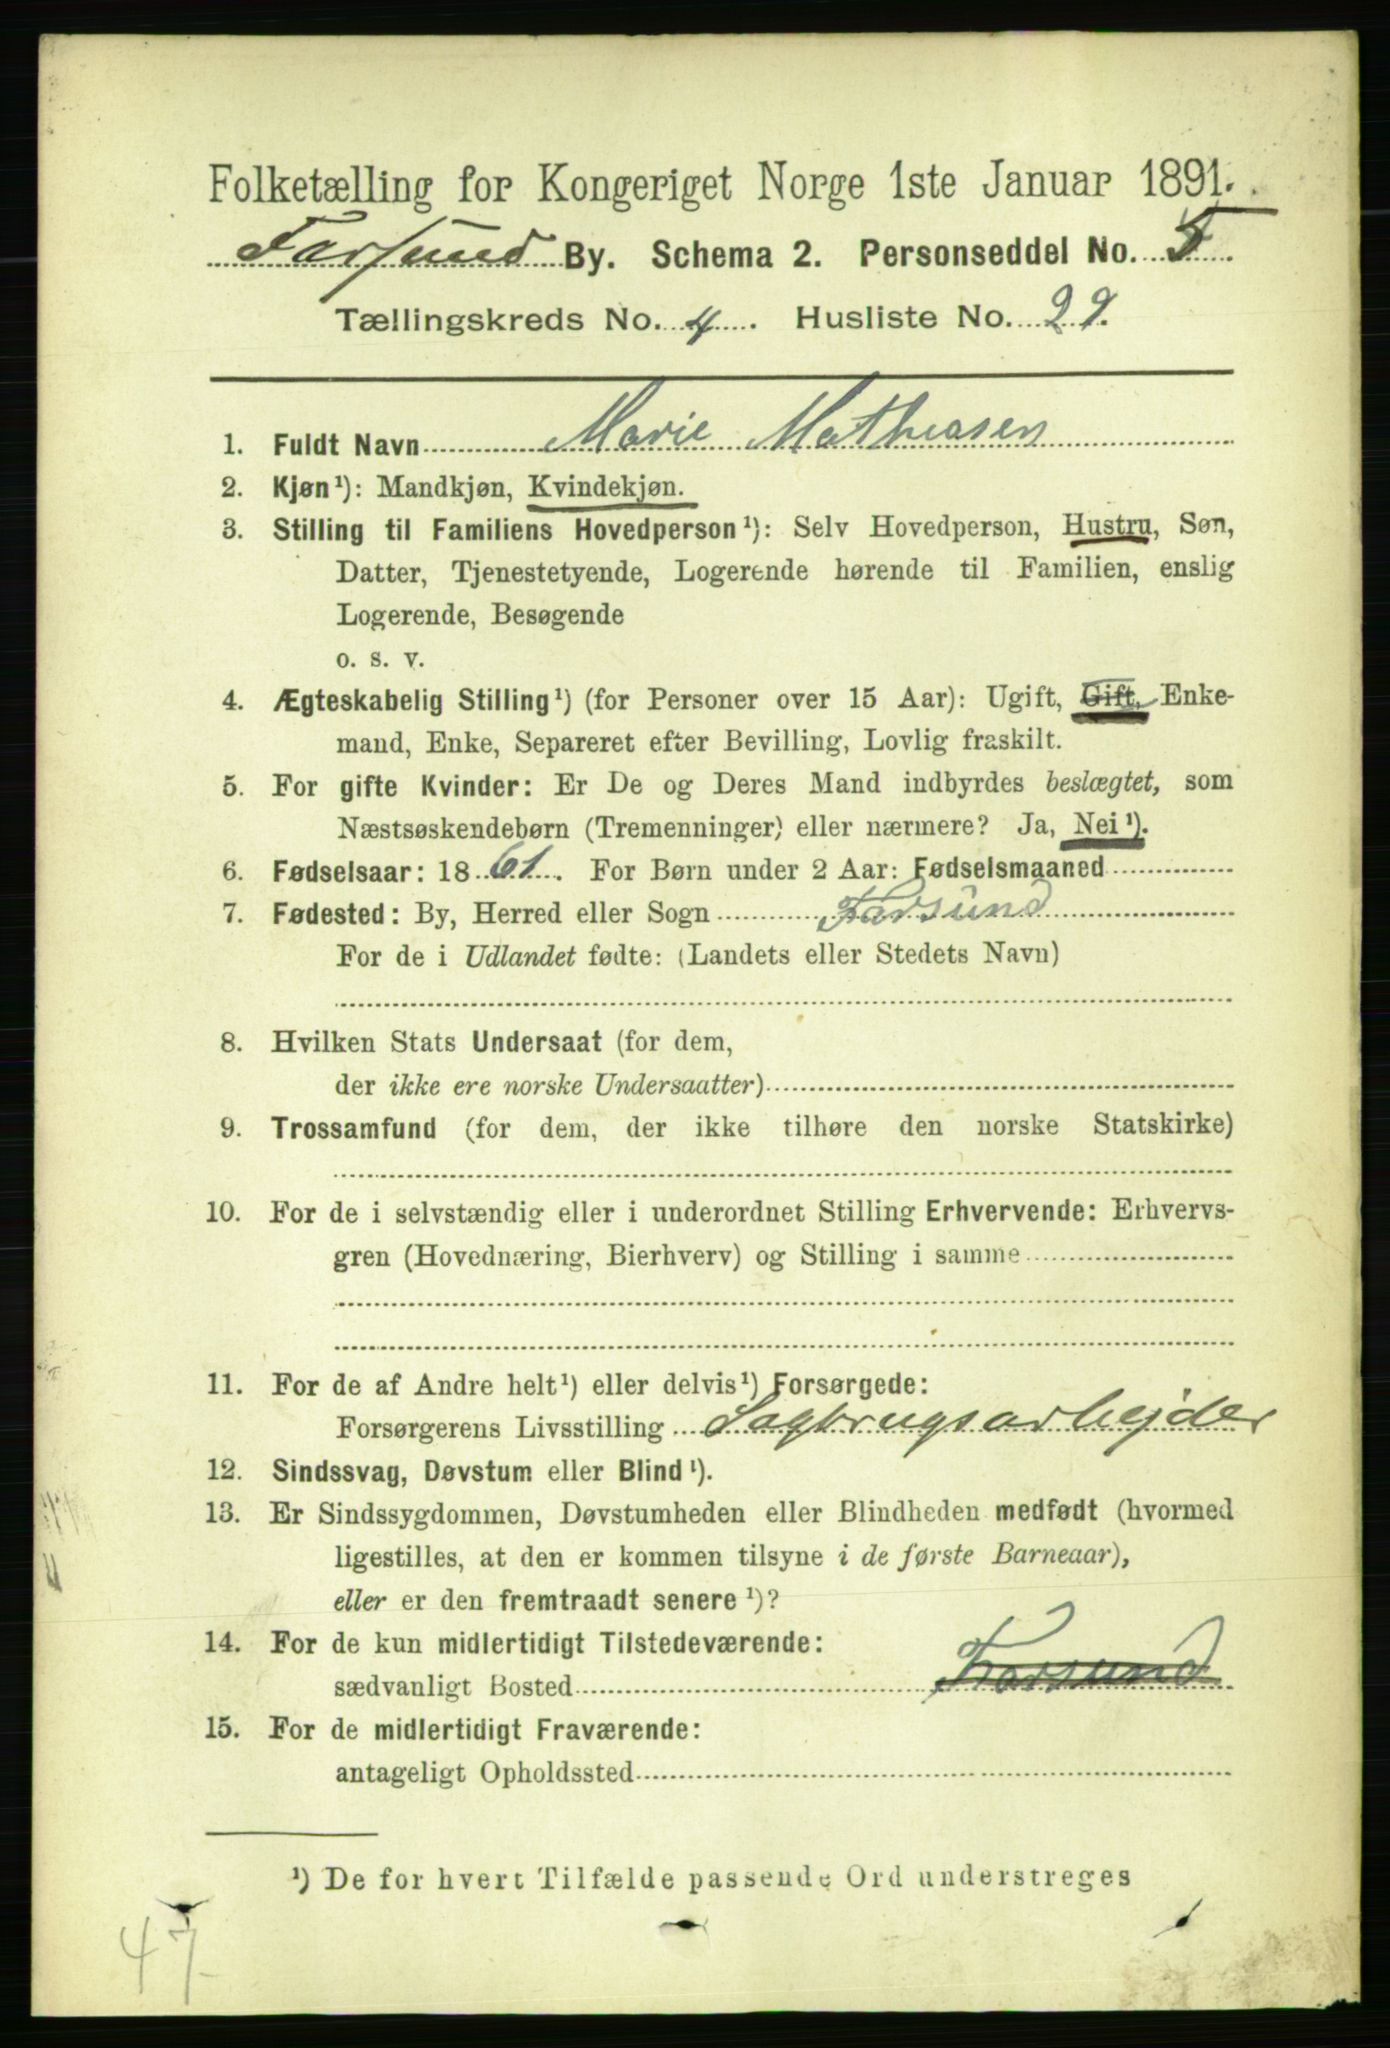 Folketælling for Kongeriget Norge 1ste Januar 1891.
Farsund By. Schema 2. Personseddel No. 5
Tællingskreds No. 4. Husliste No. 29.
1. Fuldt Navn Marie Mathiasen
2. Kjøn¹): Mandkjøn, Kvindekjøn.
3. Stilling til Familiens Hovedperson¹): Selv Hovedperson, Hustru, Søn,
Datter, Tjenestetyende, Logerende hørende til Familien, enslig
Logerende, Besøgende
o. s. v.
4. Ægteskabelig Stilling¹) (for Personer over 15 Aar): Ugift, Gift, Enke-
mand, Enke, Separeret efter Bevilling, Lovlig fraskilt.
5. For gifte Kvinder: Er De og Deres Mand indbyrdes beslægtet, som
Næstsøskendebørn (Tremenninger) eller nærmere? Ja, Nei¹).
6. Fødselsaar: 1861. For Børn under 2 Aar: Fødselsmaaned
7. Fødested: By, Herred eller Sogn Farsund
For de i Udlandet fødte: (Landets eller Stedets Navn)
8. Hvilken Stats Undersaat (for dem,
der ikke ere norske Undersaatter)
9. Trossamfund (for dem, der ikke tilhøre den norske Statskirke)
10. For de i selvstændig eller i underordnet Stilling Erhvervende: Erhvervs-
gren (Hovednæring, Bierhverv) og Stilling i samme
11. For de af Andre helt¹) eller delvis¹) Forsørgede:
Forsørgerens Livsstilling Sagbrugsarbejder
12. Sindssvag, Døvstum eller Blind¹).
13. Er Sindssygdommen, Døvstumheden eller Blindheden medfødt (hvormed
ligestilles, at den er kommen tilsyne i de første Barneaar),
eller er den fremtraadt senere¹)?
14. For de kun midlertidigt Tilstedeværende:
sædvanligt Bosted Farsund
15. For de midlertidigt Fraværende:
antageligt Opholdssted
¹) De for hvert Tilfælde passende Ord understreges
47